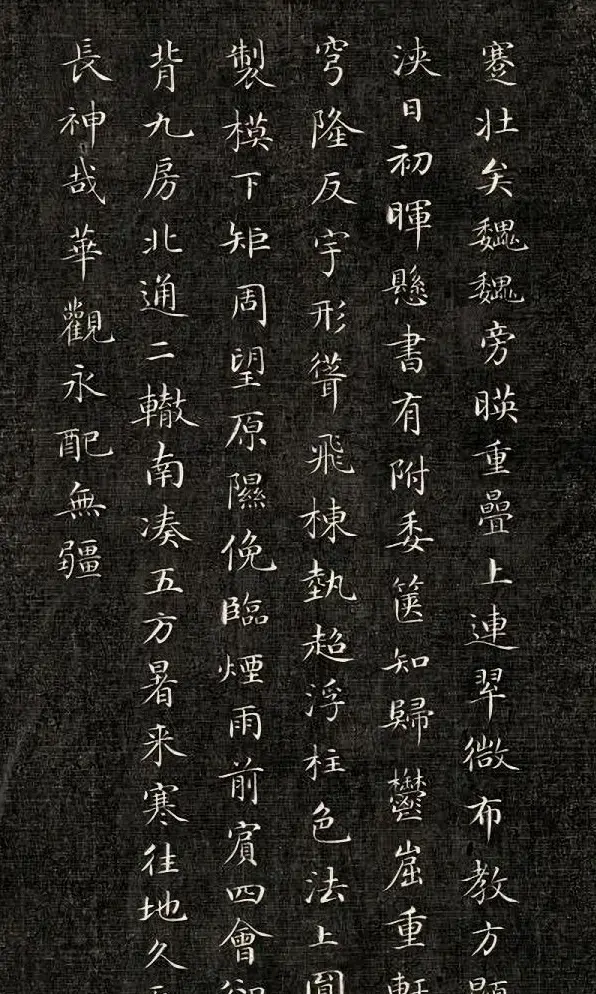 蹇壯矣魏魏旁暎重疊上連翠微布教方顯
浹日初暉懸書有附委篋知歸欝崫重軒
穹隆反宇形聳飛棟埶超浮柱色法上圓
製模下矩周望原隰俛臨煙雨前賔四會
背九房北通二轍南湊五方暑来寒往地久
長神哉華觀永配無疆